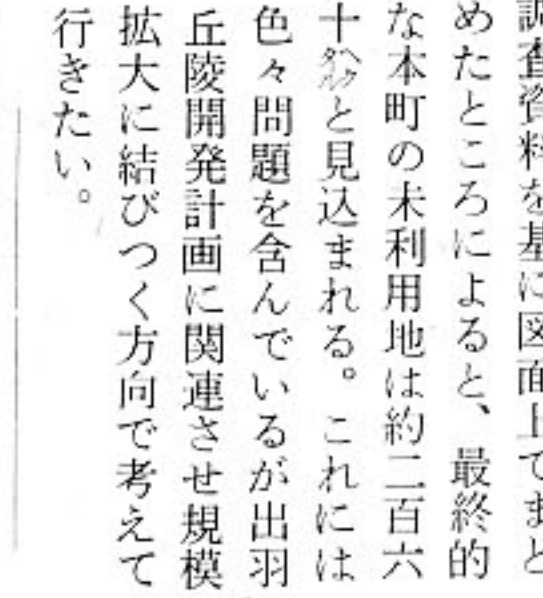 調査資料を基に図面上でまと
めたところによると、最終的
な本町の未利用地は約二百六
十ヘクタールと見込まれる。これには
色々問題を含んでいるが出羽
丘陵開発計画に関連させ規模
拡大に結びつく方向で考えて
行きたい。